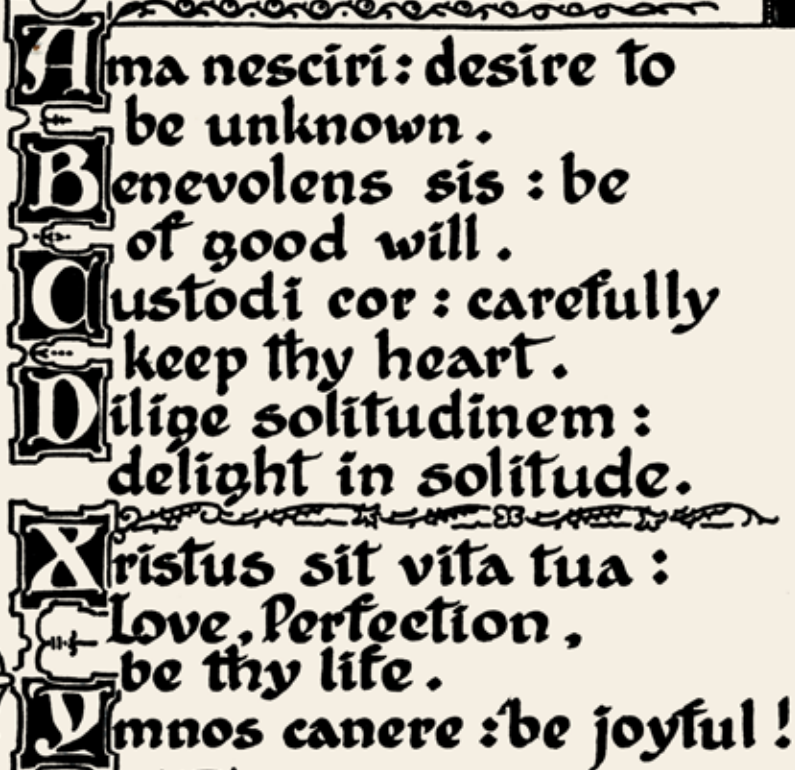 Ama nesciri: desire to
be unknown.
Benevolens sis : be
of good will.
Custodi cor : carefully
keep thy heart.
Dilige solitudinem :
delight in solitude.
Xristus sit vita tua :
Love, Perfection,
be thy life.
Ymnos canere : be joyful!